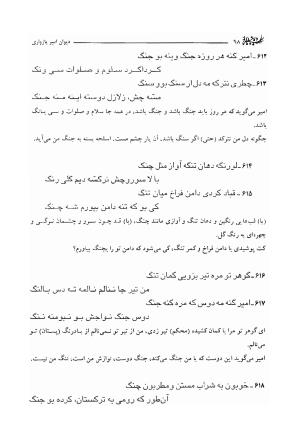 ۹۸
دیوان امیر پازواری
۶۱۲ـ امیر گنه هر روزه جنگ وینه بو جنگ
گرداگرد سلوم و صلوات سی ونگ
۶۱۳ـ چطری نترکه مه دل ار سنگ بوو سنگ
مته چش، زلازل دوسته اینه مـه جنگ
امیر می‌گوید که هر روز باید جنگ باشد و جنگ باشد، در همه جا سلام و صلوات و سی بانگ
باشد.
چگونه دل من نترکد (حتی) اگر سنگ باشد، آن یار چشم مست. اسلحه بسته به جنگ من می‌آید.
۶۱۴ ـ لورنگه دهان تنگه آواز مثل چنگ
با لا سوررو چش نرگسه دیم گلی رنگ
۶۱۵ ـ قباد کردی دامن فراخ میان تنگ
کی بو که تنه دامن بیورم شـه چنگ
(با) لب‌هایی رنگین و دهان تنگ و آوازی مانند چنگ، (با) قد چون سرو و چشمان نرگسی و
چهره‌ای به رنگ گل.
کت پوشیدی با دامن فراخ و کمر تنگ، کی می‌شود که دامن تو را بچنگ بیاورم؟
۶۱۶ ـ گوهر تو مره تیر بزویی کمان تنگ
من تیر جا ننالم نالمه ته دس بالنگ
۶۱۷ـ امیر گنه مه دوس که مره کنه جنگ
دوس جنگ نواجش بو نیومنه ننگ
ای گوهر تو مرا با کمان کشیده (محکم) تیر زدی. من از تیر تو نمی‌نالم از بادرنگ (پستان) تو
می‌نالم.
امیر می‌گوید این دوست که با من جنگ می‌کند، جنگ دوست، نوازش من است، ننگ من نیست.
۶۱۸ ـ خوبون به شراب مستن ومطربون چنگ
آن‌طور که رومی به ترکستان، کرده بو جنگ